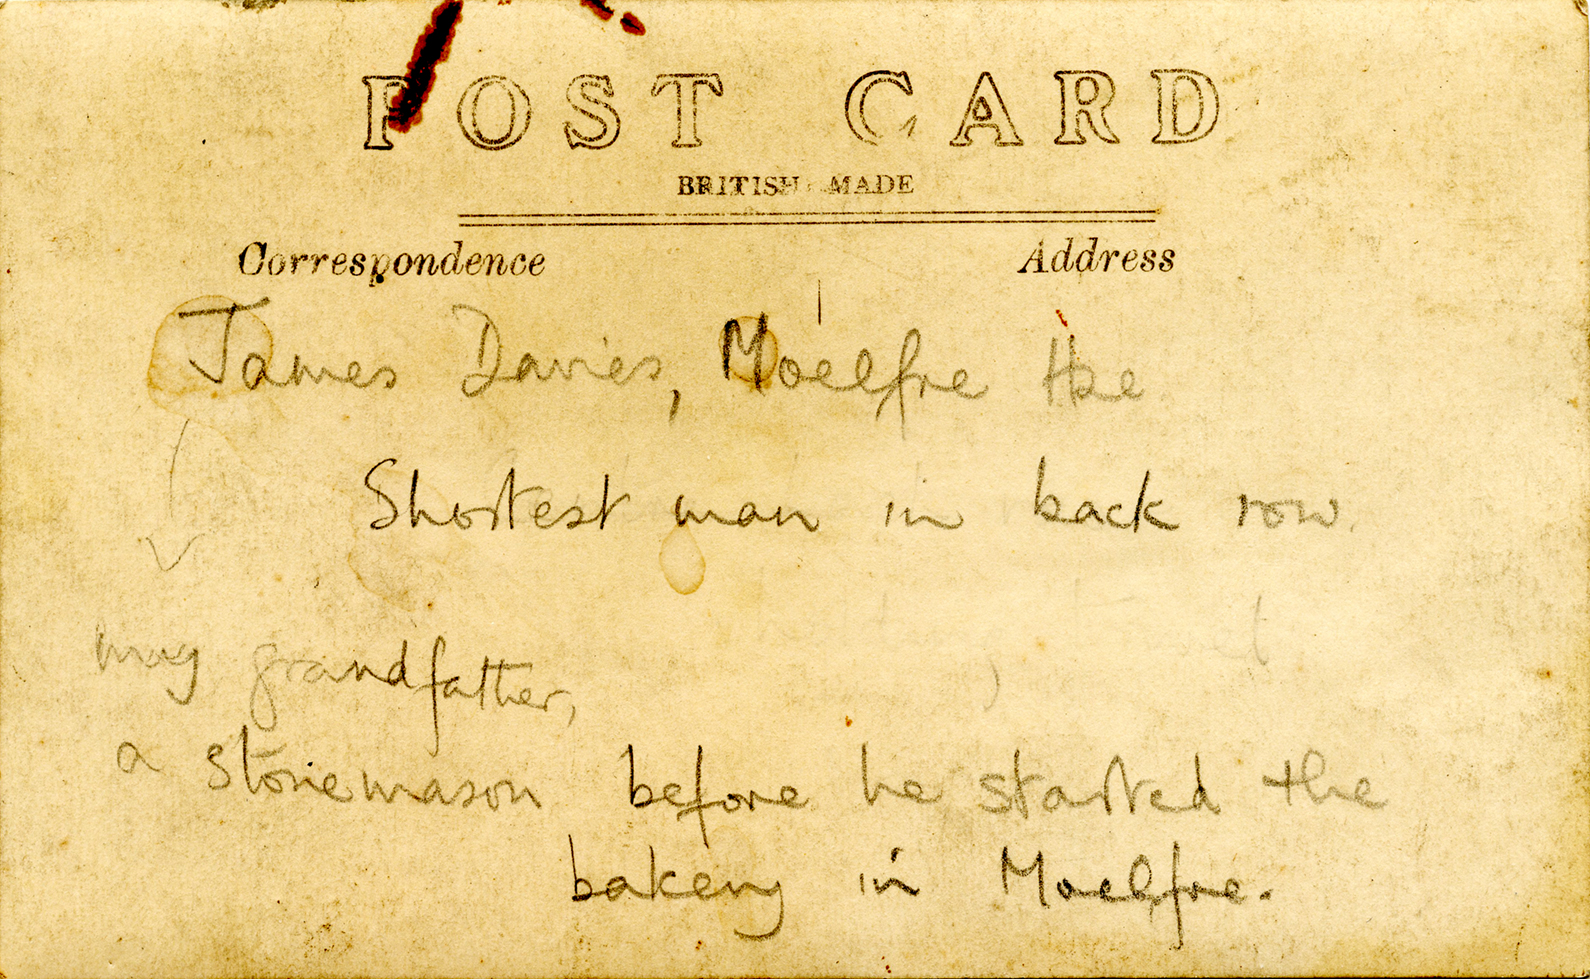 POST CARD
BRITISH MADE
Correspondence
Address
James Davies, Moelfre the
Shortest man in back row.
my grandfather,
a stonemason before he started the
bakery in Moelfre.